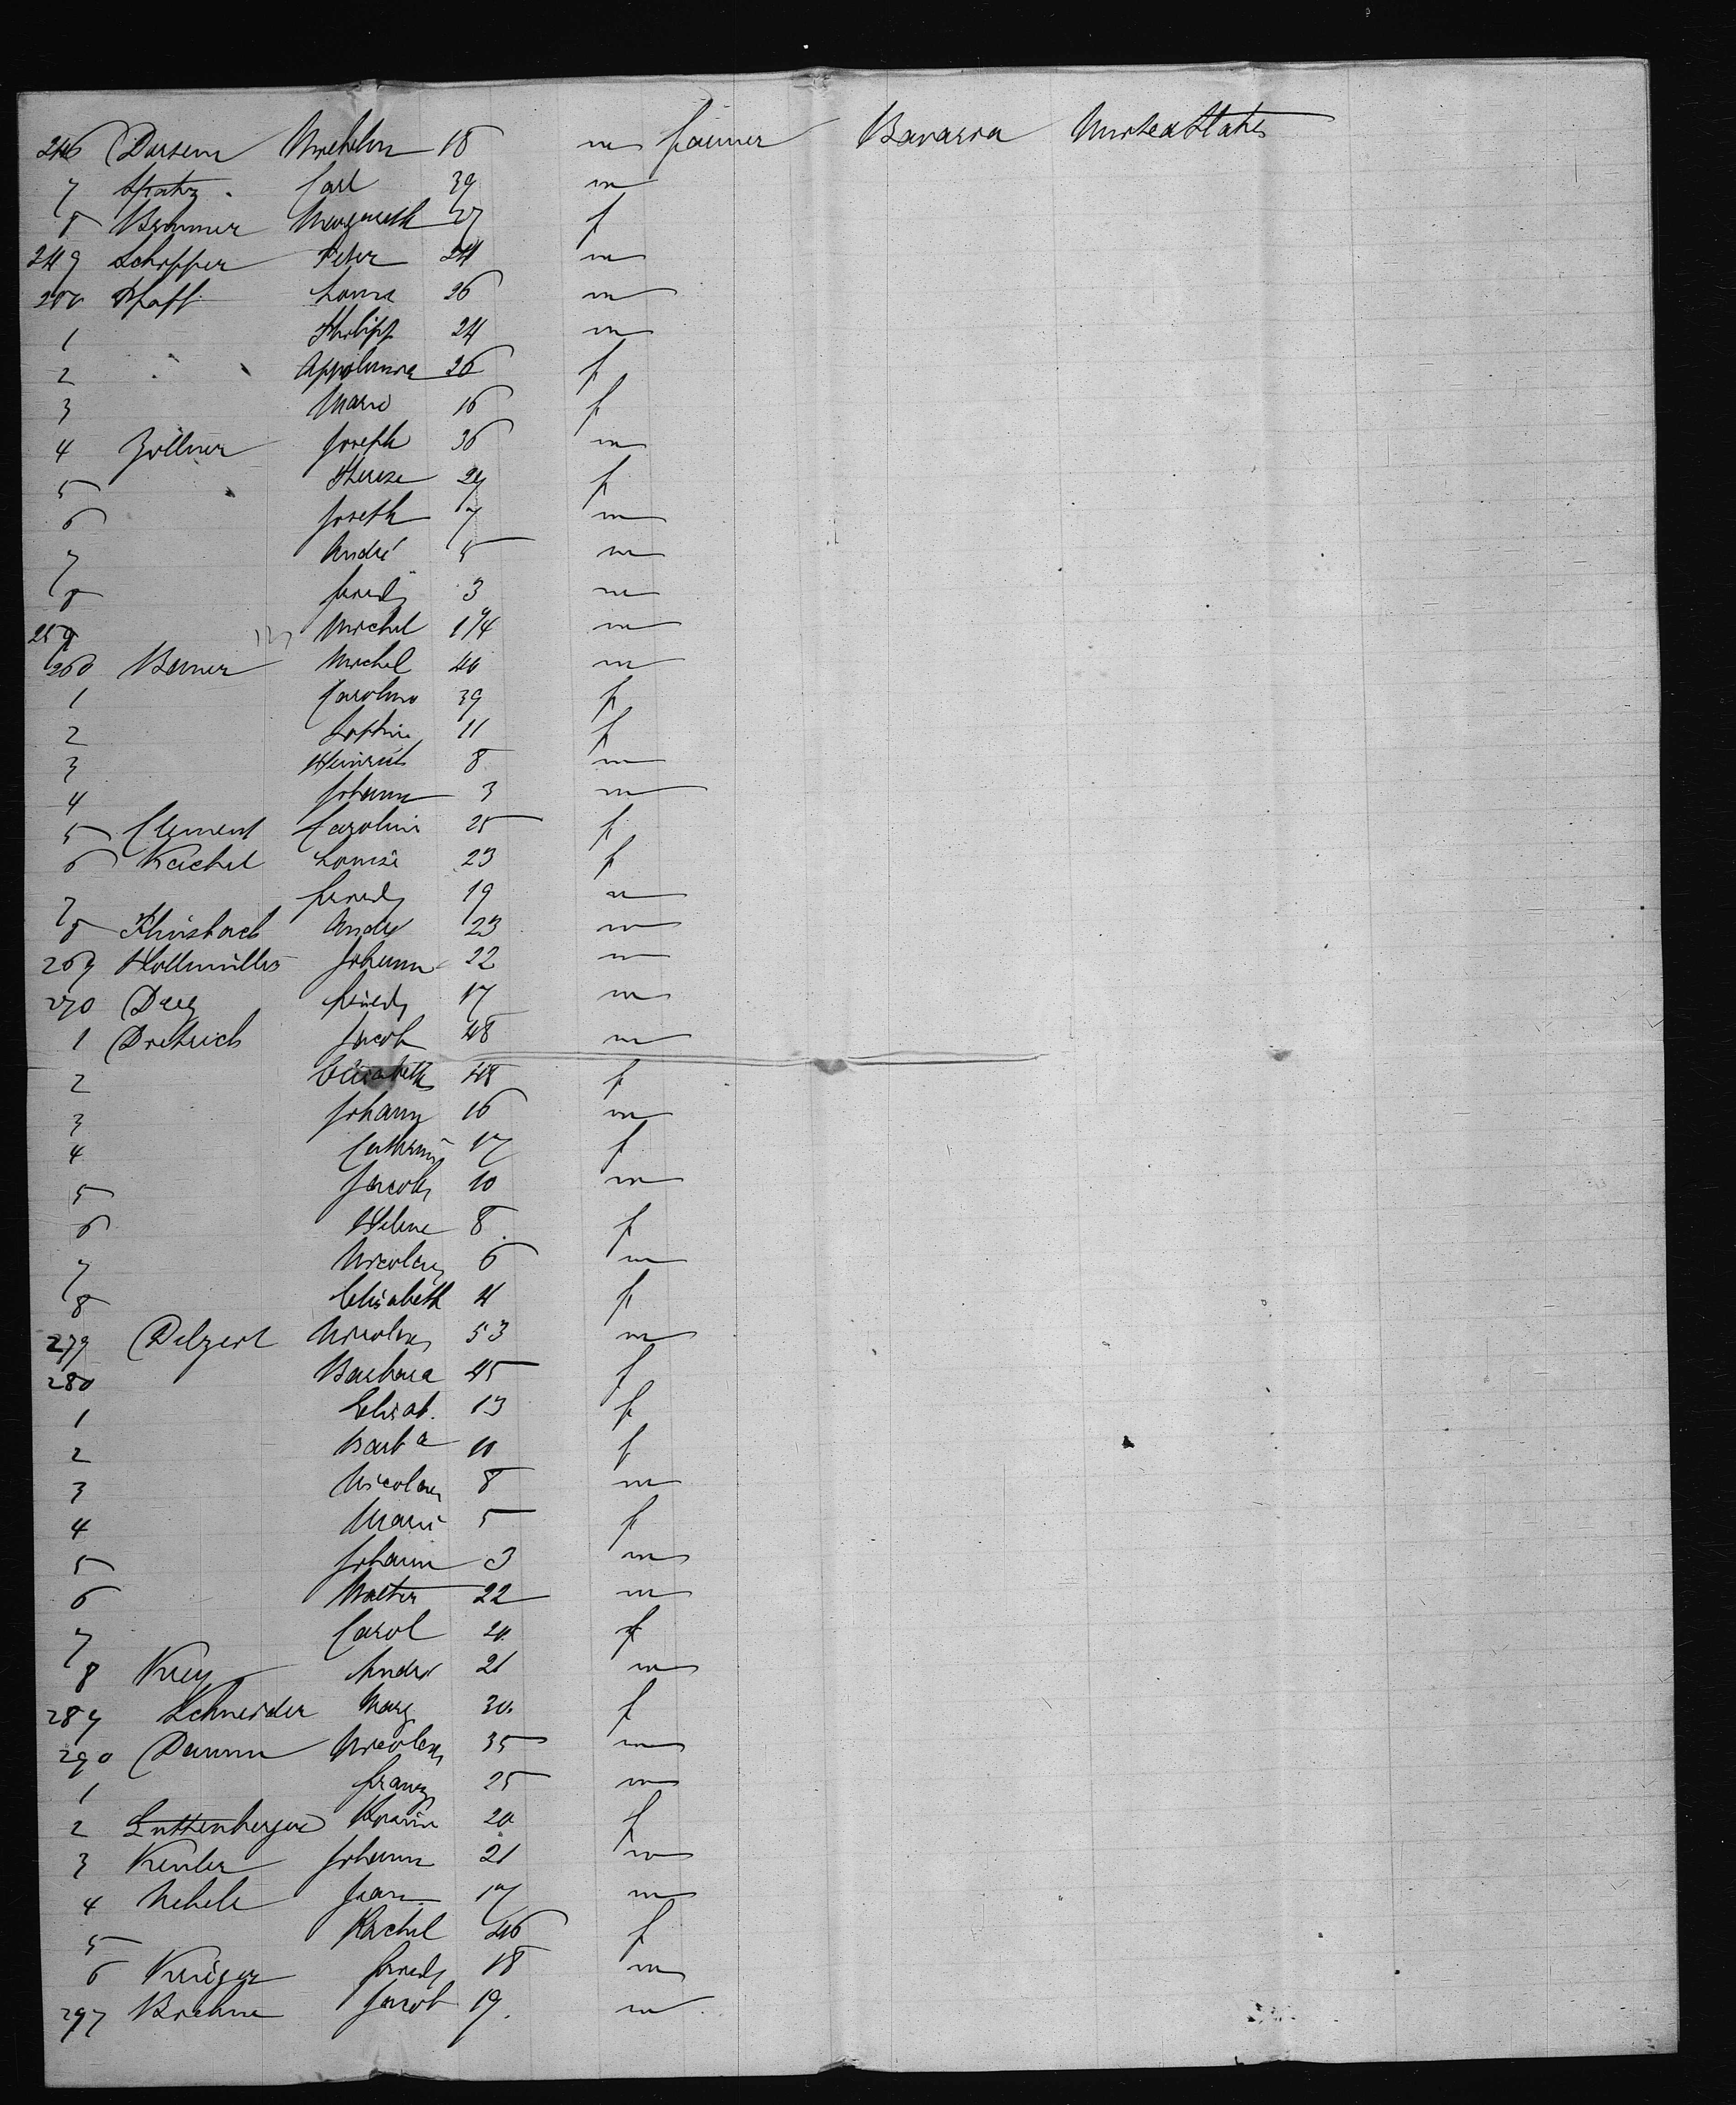 246 Dursem Wilhelm 18 m farmer Bavaria United States
7 Spatz Carl 39 m
8 Brunner Margareth 27 f
249 Schipper Peter 24 m
250 Pfaff Louis 26 m
1 Philipp 24 m
2 Appolonia 26 f
3 Marie 16 f
4 Zöllner Joseph 36 m
5 Therese 29 f
6 Joseph 7 m
7 André 5 m
8 friedr 3 m
259 Michel 1 1/4 m
260 Bauer Michel 40 m
1 Caroline 39 f
2 Sophie 11 f
3 Heinrich 8 m
4 Johann 3 m
5 Clement Caroline 25 f
6 Kachel Louise 23 f
7 friedr 19 m
8 Andr 23 m
269 Hollmüller Johann 22 m
270 friedr 17 m
1 Dietrich Jacob 48 m
2 Elisabeth 48 f
3 Johann 16 m
4 Catharine 17 f
5 Jacob 10 m
6 Helene 8 f
7 Nicolaus 6 m
8 Elisabeth 4 f
279 Delzert Nicolaus 53 m
280 Barbara 45 f
1 Elisab. 13 f
2 Barba 10 f
3 Nicolaus 8 m
4 Marie 5 f
5 Johann 3 m
6 Walter 22 m
7 Carol 20 f
8 Krey Andr 21 m
289 Schneider Marg 30 f
290 Damm Nicolaus 35 m
1 franz 25 m
2 Luttenberger 20 f
3 Johann 21 m
4 Nebele Jean 17 m
5 Rachel 46 f
6 Krüger friedr 18 m
297 Brehme Jacob 19. m